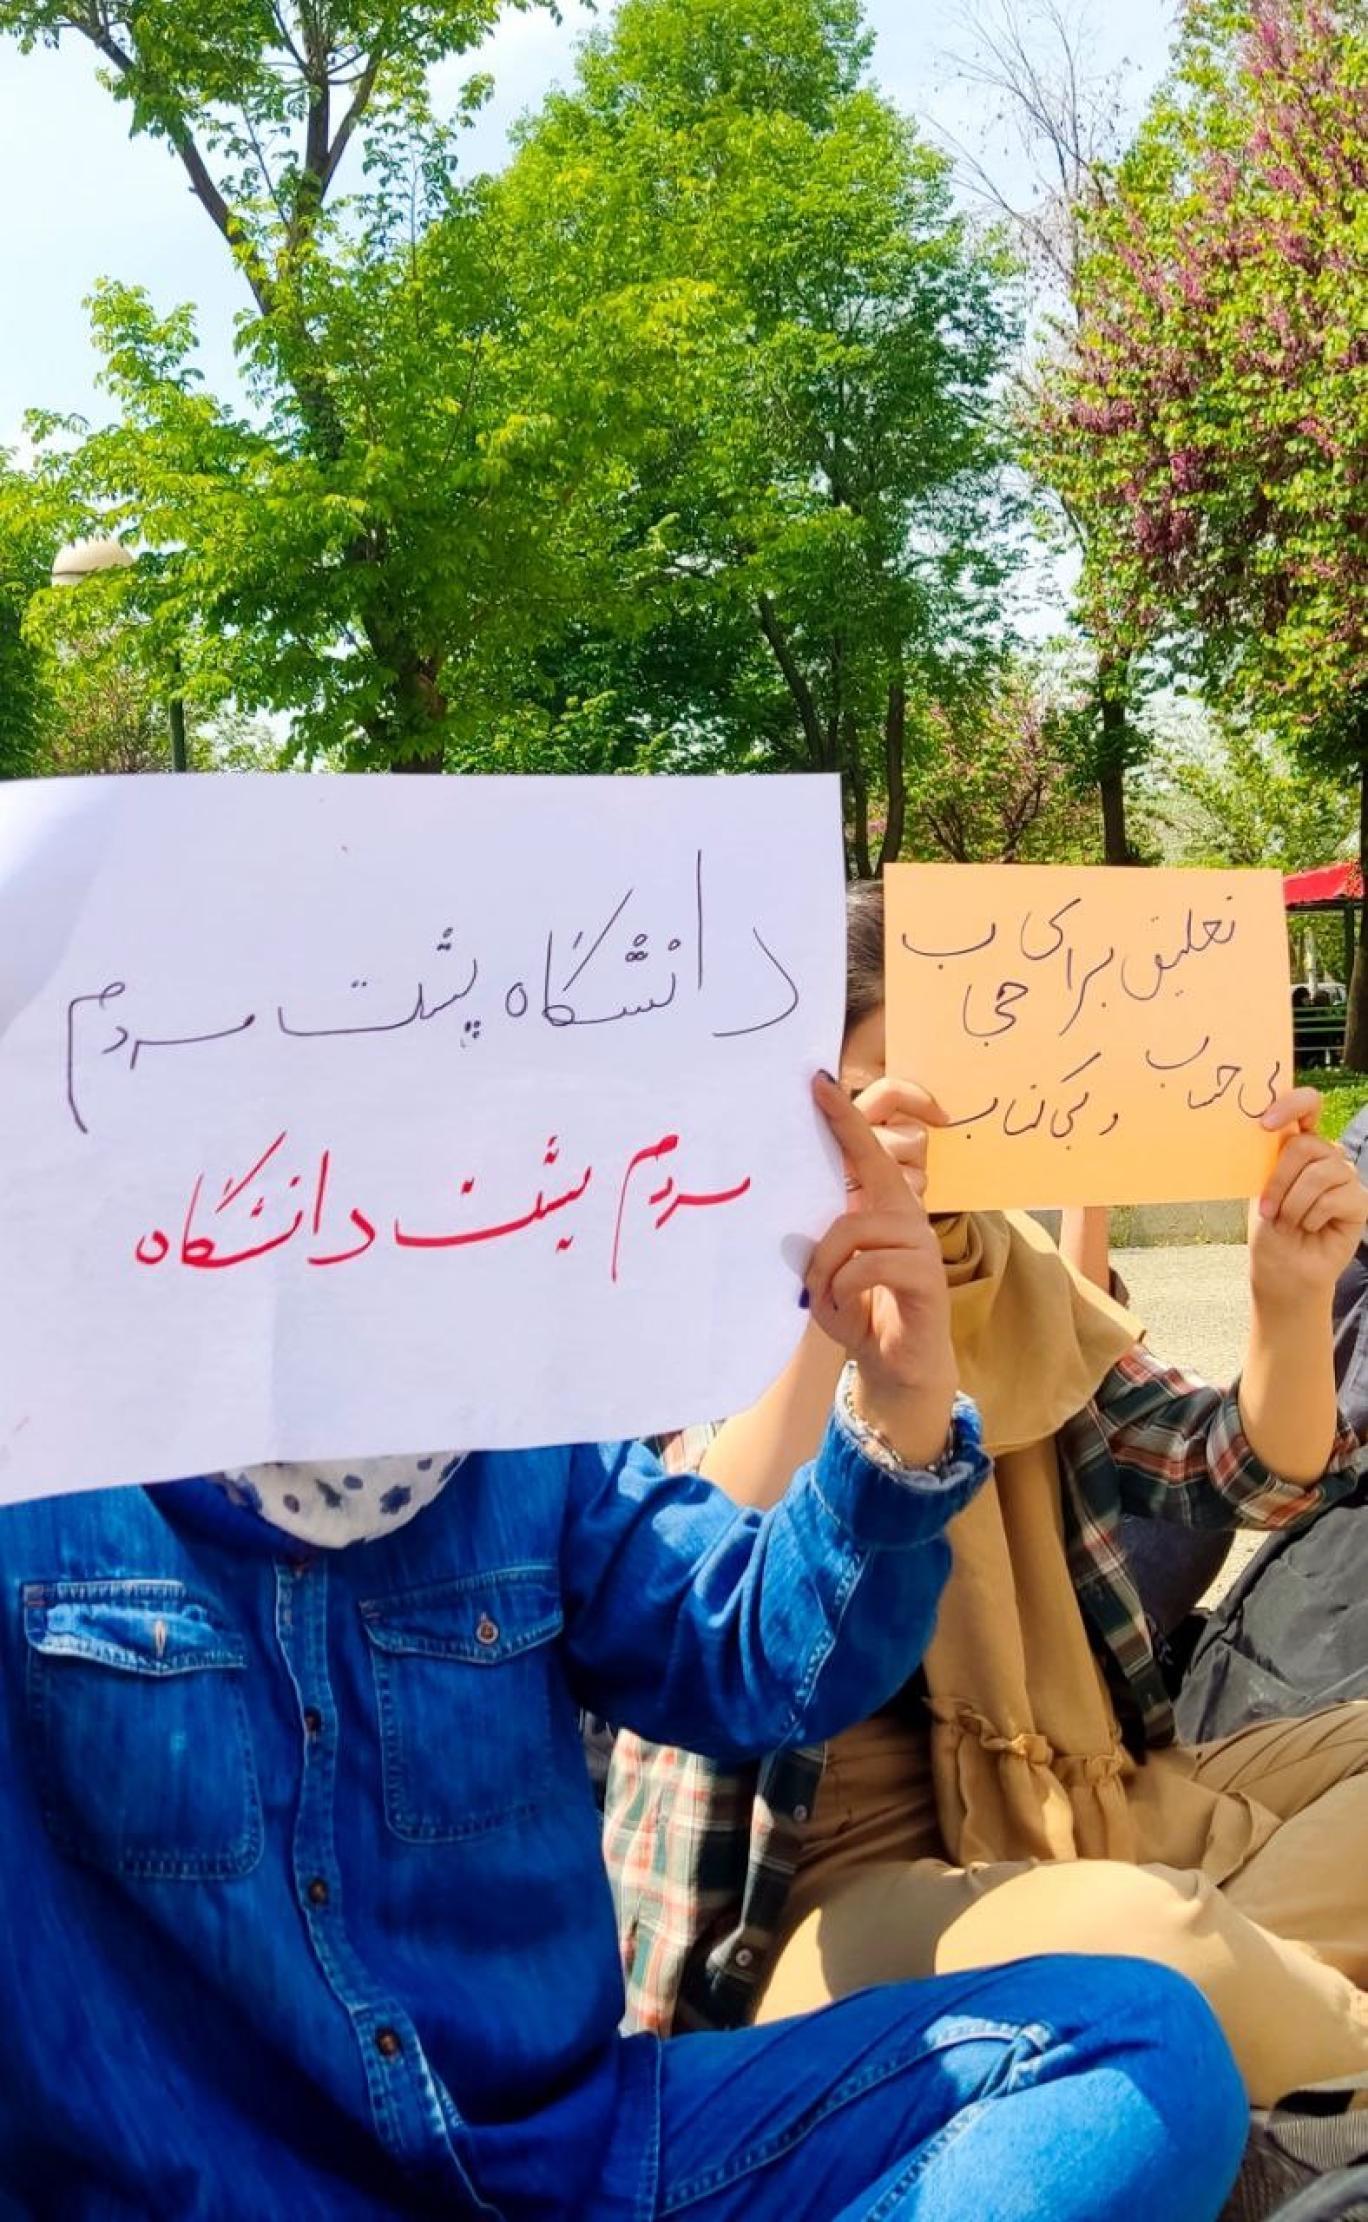 دانشگاه پشت مردم
مردم پشت دانشگاه
تعلیق برای حجاب
بی حساب
و بی کتاب